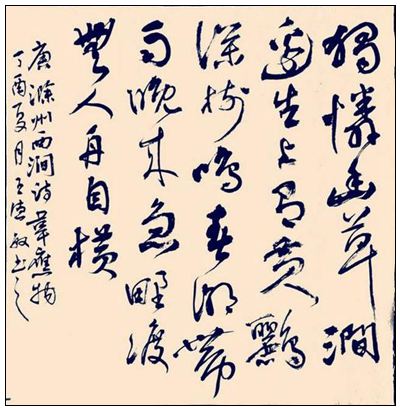 獨憐幽草澗
邊生上有黃鸝
深樹鳴春潮帶
雨晚來急野渡
無人舟自橫
唐滁州西澗诗韋應物
丁酉夏月王德敏书之